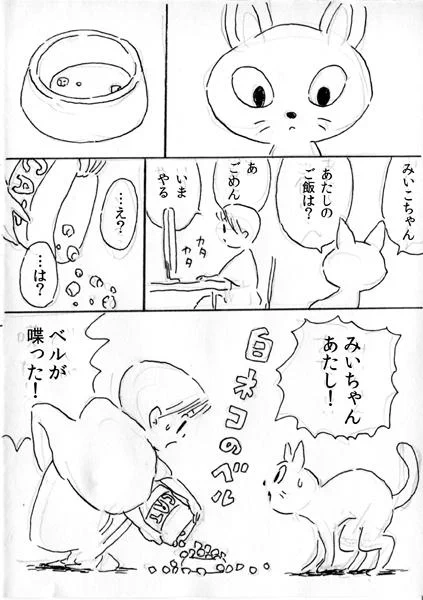 みいこちゃん
あたしの
ご飯は?
あ
ごめん
いま
やる
カタ
カタ
…え?
…は?
CAT
みいちゃん
あたし!
白ネコのベル
ベルが
喋った!